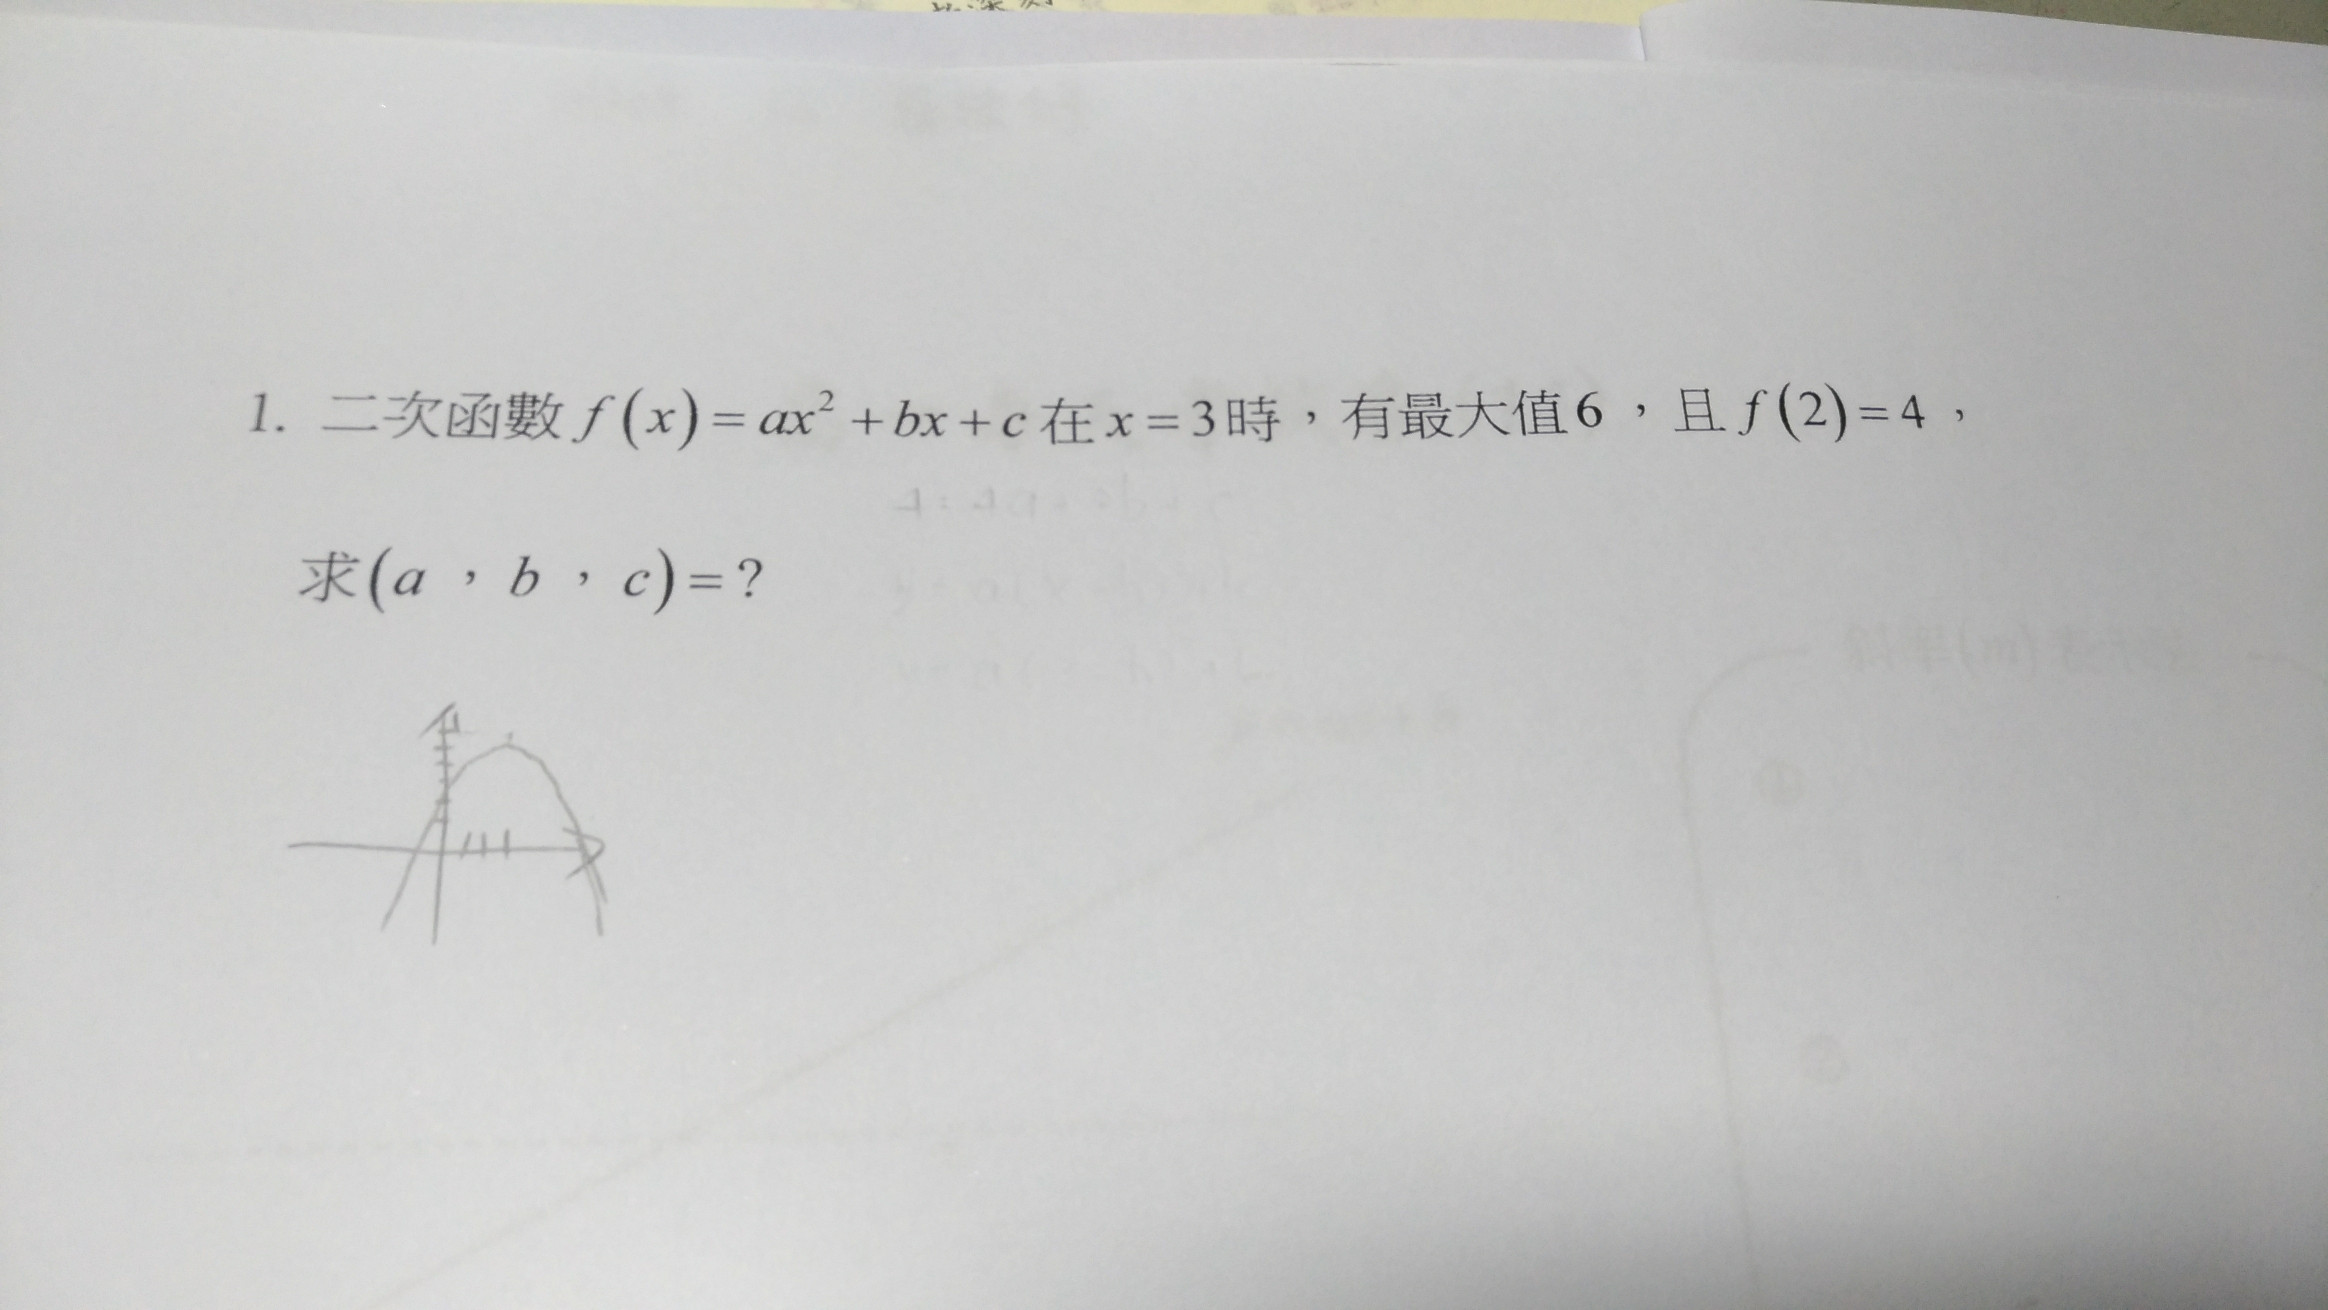 1. 二次函數 f(x)=ax²+bx+c 在 x=3時，有最大值6，且 f(2)=4，
求(a，b，c)=?